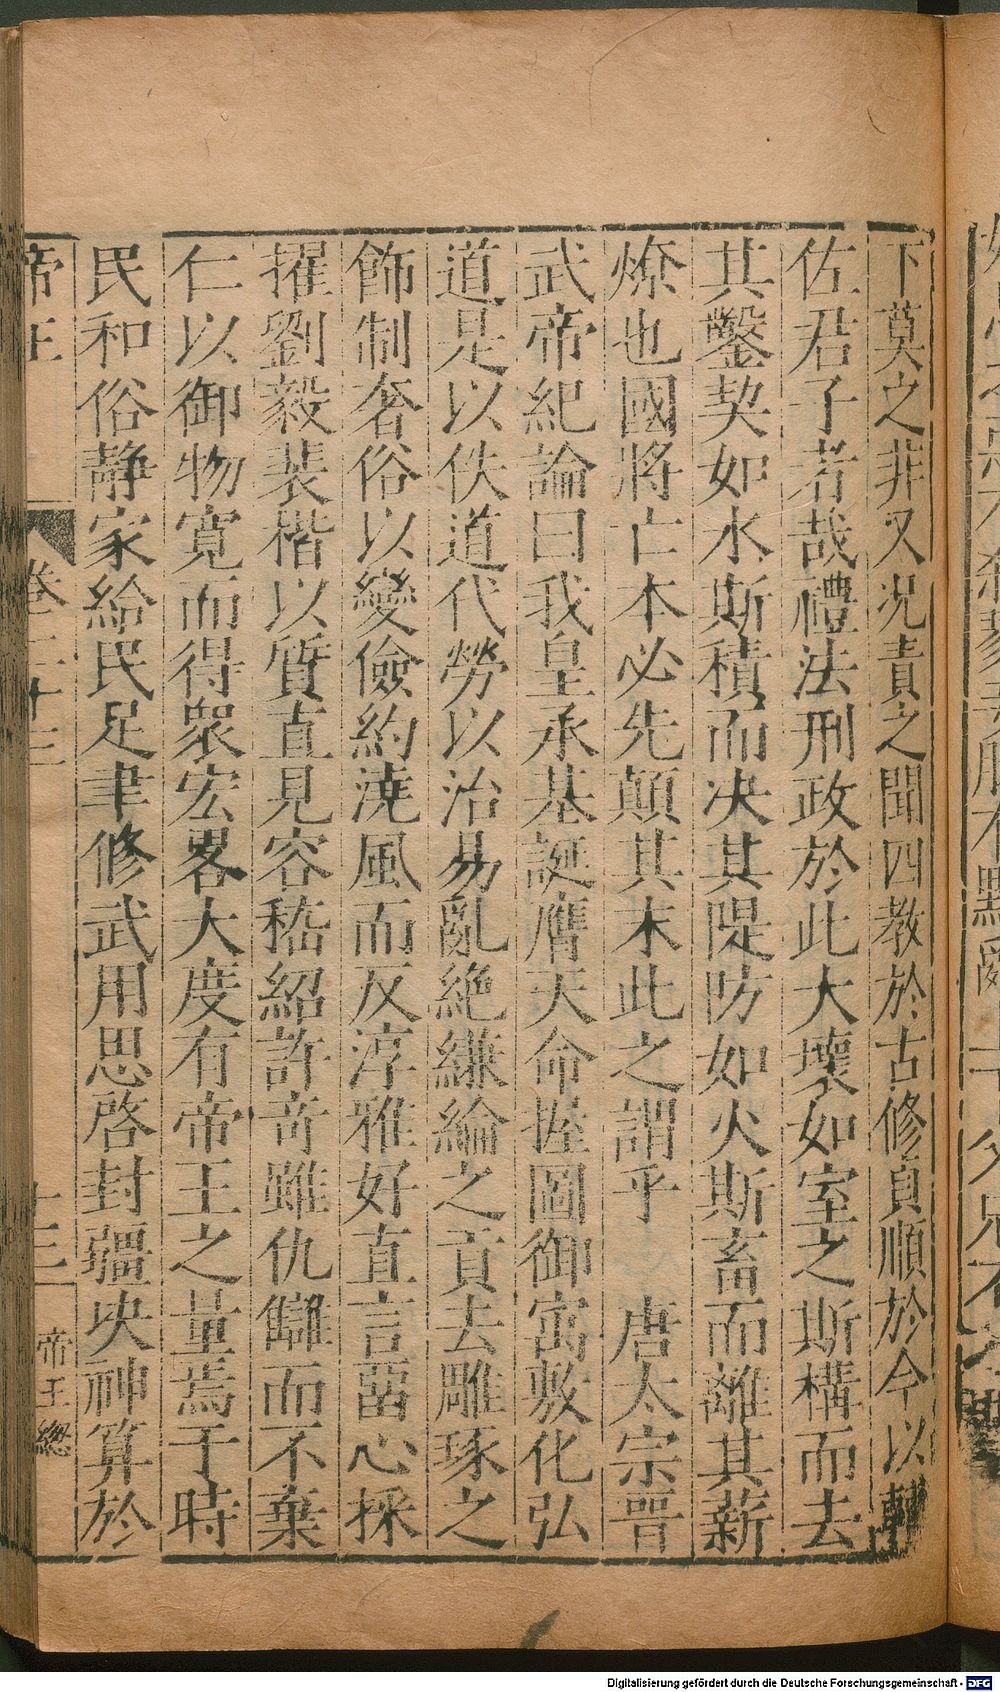 下莫之非又况責之聞四教於古修貞順於今以輔
佐君子若哉禮法刑政於此大壞如室之斯構而去
其鑿契如水斯積而决其隄防如火斯畜而離其薪
燎也國將亡本必先顛其末此之謂乎　唐太宗晋
武帝紀論曰我皇承基誕膺天命握圖御㝢敷化弘
道是以佚道代勞以治易亂絶縑綸之貢去雕琢之
飾制奢俗以變儉約澆風而反淳雅好直言畱心採
擢劉毅裴楷以質直見容嵇紹許竒雖仇讎而不棄
仁以御物寛而得衆宏畧大度有帝王之量焉于時
民和俗静家給民足聿修武用思啓封疆决神算於
帝王
卷二十三
十三
帝王總
Digitalisierung gefördert durch die Deutsche Forschungsgemeinschaft - DFG